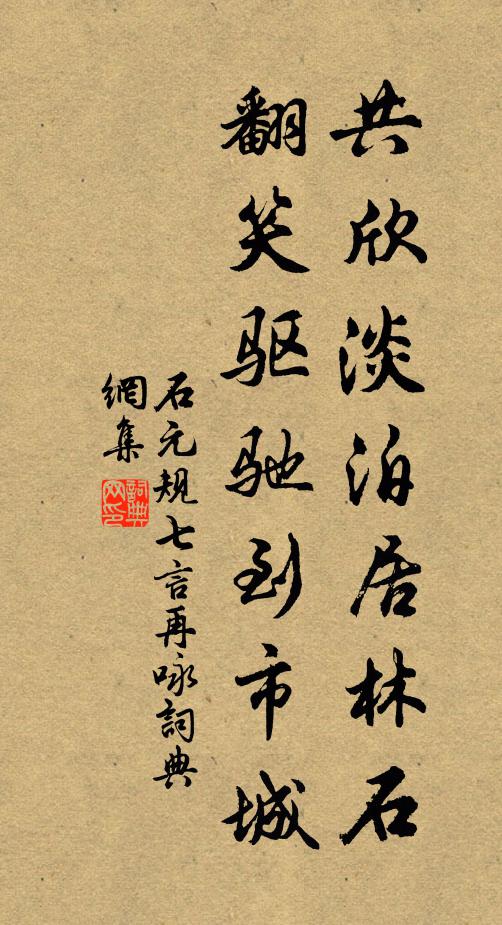 共欣淡泊居林石
翻笑驱驰到市城
石元规七言再咏詞典
網集
詞典網印